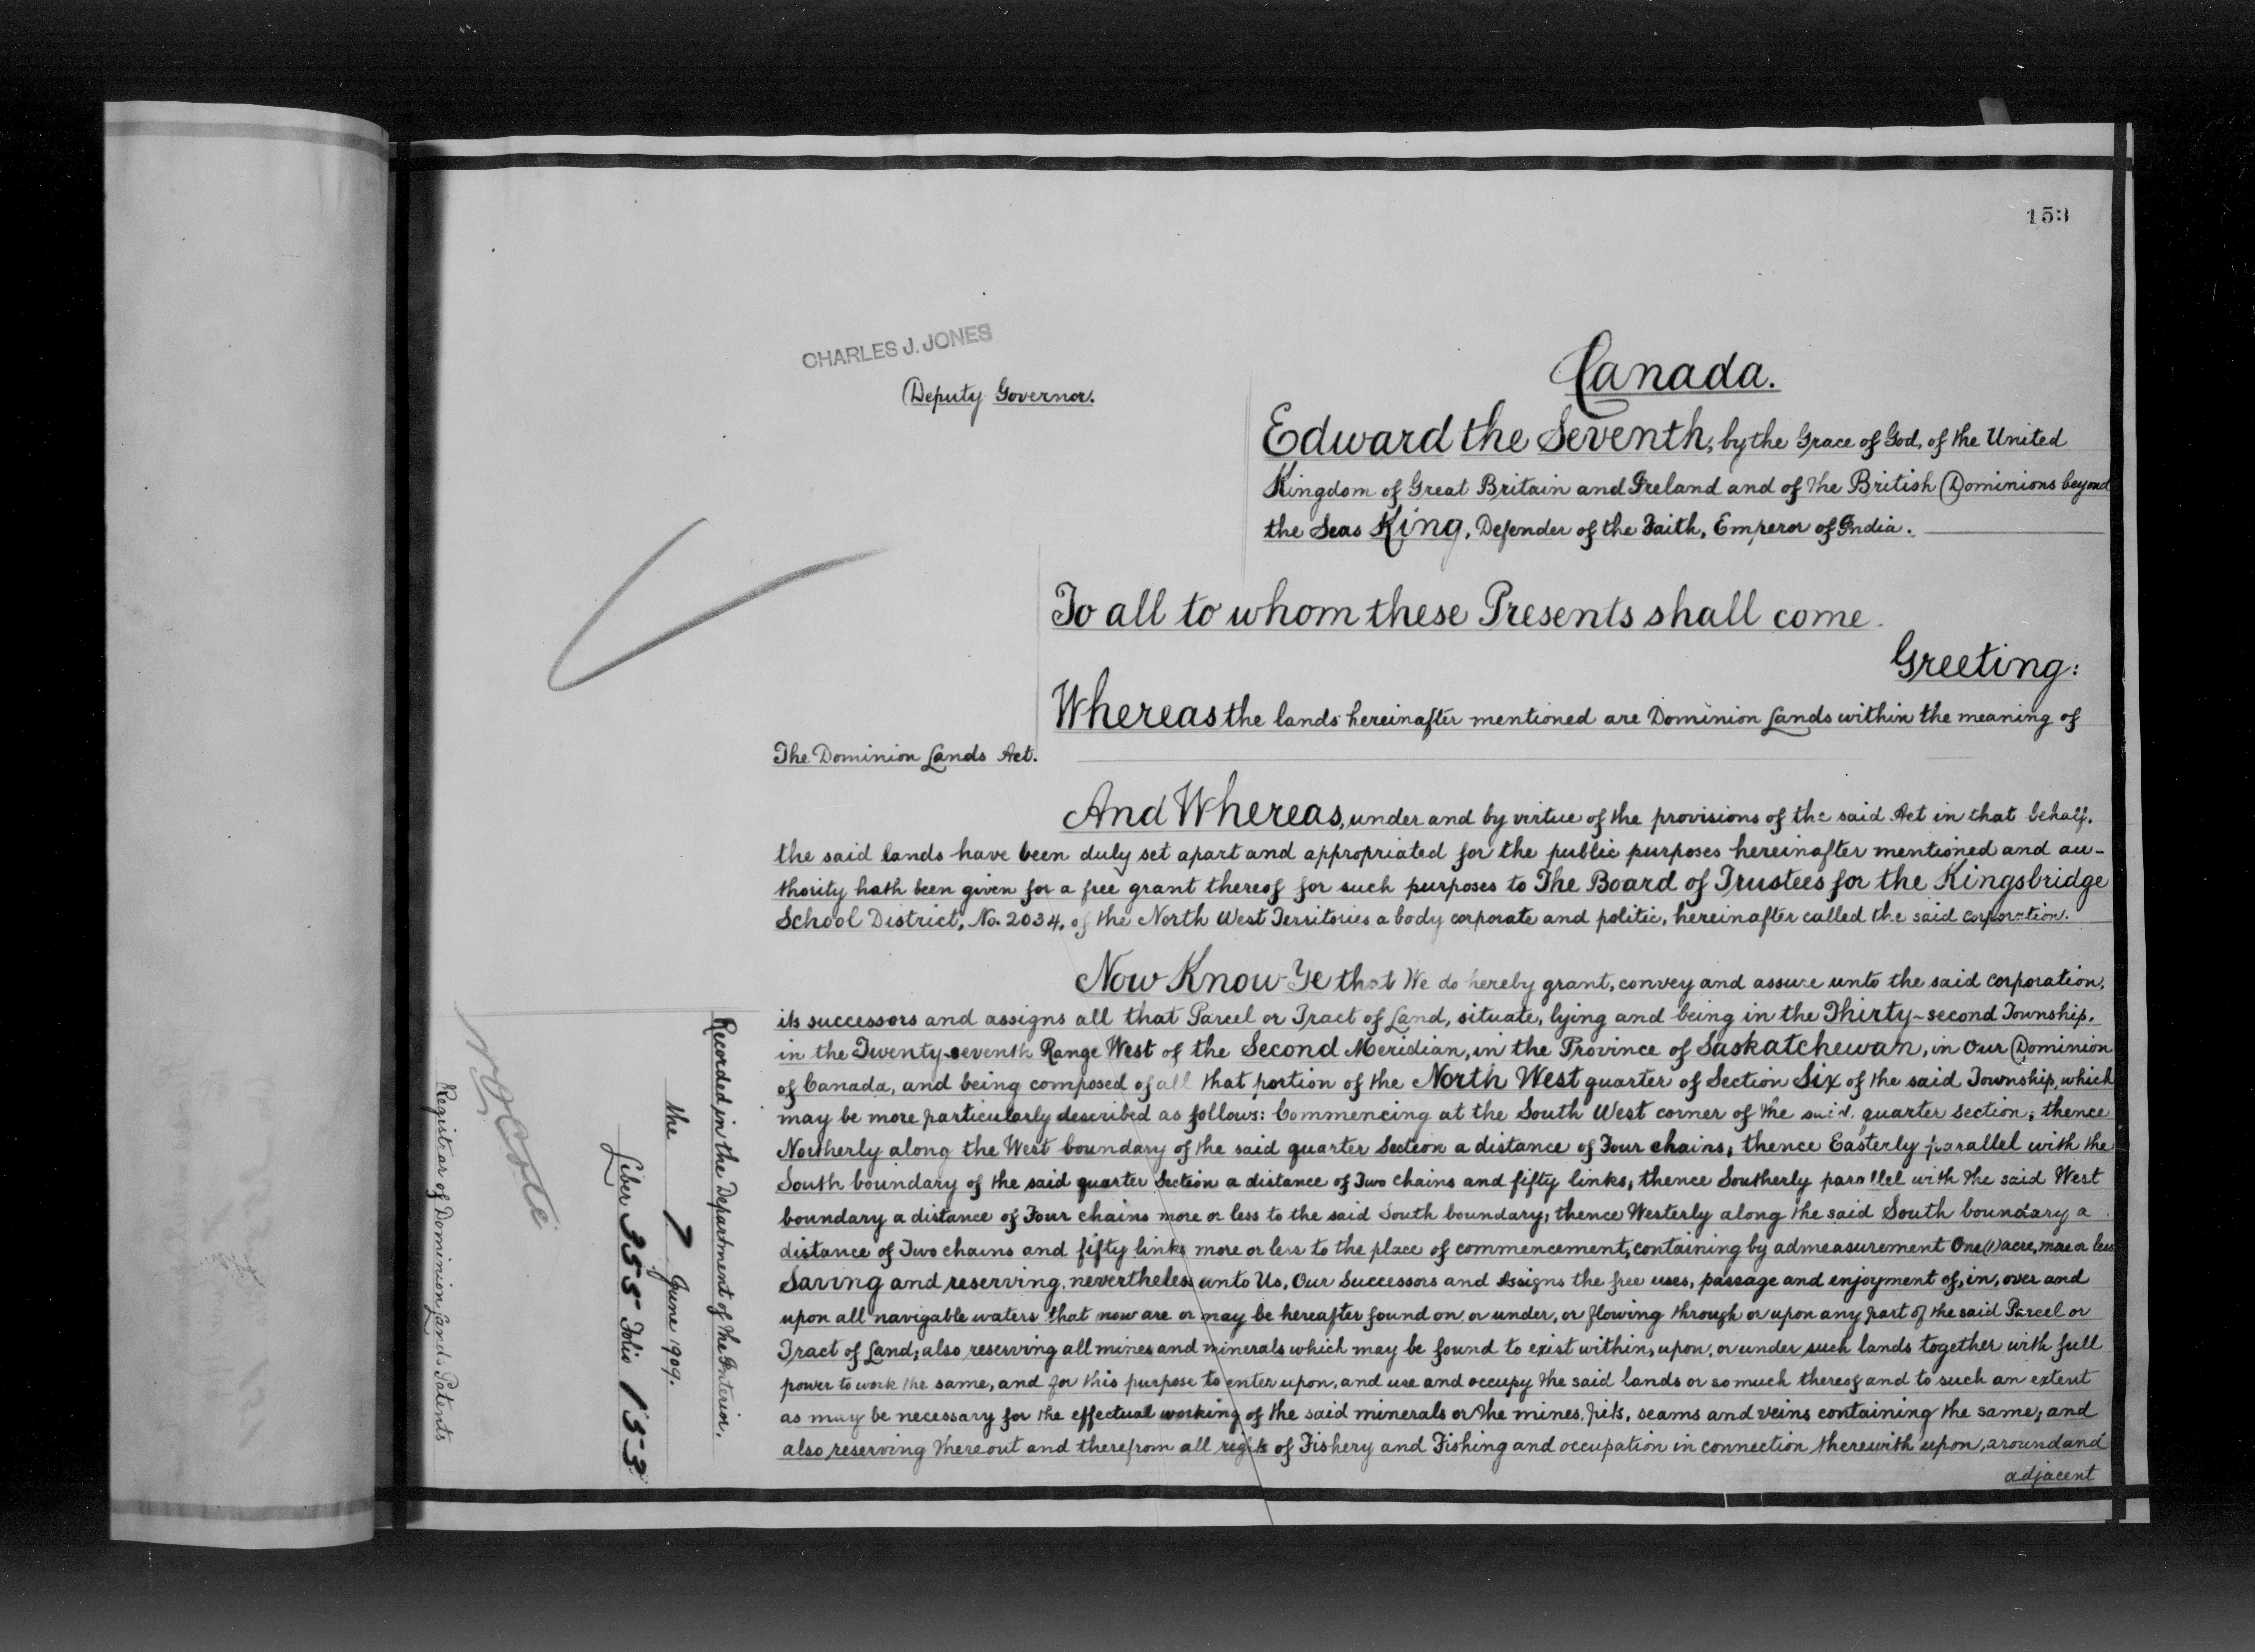 153
CHARLES J. JONES
Deputy Governor.
Canada.
Edward the Seventh, by the Grace of God, of the United
Kingdom of Great Britain and Ireland and of the British Dominions beyond
the Seas King, Defender of the Faith, Emperor of India.
To all to whom these Presents shall come.
Greeting:
Whereas the lands hereinafter mentioned are Dominion Lands within the meaning of
The Dominion Lands Act.
And Whereas, under and by virtue of the provisions of the said Act in that behalf,
the said lands have been duly set apart and appropriated for the public purposes hereinafter mentioned and au-
thority hath been given for a free grant thereof for such purposes to The Board of Trustees for the Kingsbridge
School District, No. 2034, of the North West Territories a body corporate and politic, hereinafter called the said corporation.
Now Know Ye that We do hereby grant, convey and assure unto the said corporation,
its successors and assigns all that Parcel or Tract of Land, situate, lying and being in the Thirty-second Township,
in the Twenty-seventh Range West of the Second Meridian, in the Province of Saskatchewan, in Our Dominion
of Canada, and being composed of all that portion of the North West quarter of Section Six of the said Township, which
may be more particularly described as follows: Commencing at the South West corner of the said quarter section; thence
Northerly along the West boundary of the said quarter Section a distance of Four chains; thence Easterly parallel with the
South boundary of the said quarter Section a distance of Two chains and fifty links; thence Southerly parallel with the said West
boundary a distance of Four chains more or less to the said South boundary; thence Westerly along the said South boundary a
distance of Two chains and fifty links more or less to the place of commencement, containing by admeasurement One (1) acre, more or less
Saving and reserving, nevertheless unto Us, Our Successors and Assigns the free uses, passage and enjoyment of, in, over and
upon all navigable waters that now are or may be hereafter found on or under, or flowing through or upon any part of the said Parcel or
Tract of Land; also reserving all mines and minerals which may be found to exist within, upon, or under such lands together with full
power to work the same, and for this purpose to enter upon, and use and occupy the said lands or so much thereof and to such an extent
as may be necessary for the effectual working of the said minerals or the mines, pits, seams and veins containing the same; and
also reserving thereout and therefrom all rights of Fishery and Fishing and occupation in connection therewith upon, around and
adjacent
Recorded in the Department of the Interior,
the 7 June 1909.
Liber 355 Folio 153
N O Coté
Registrar of Dominion Lands Patents